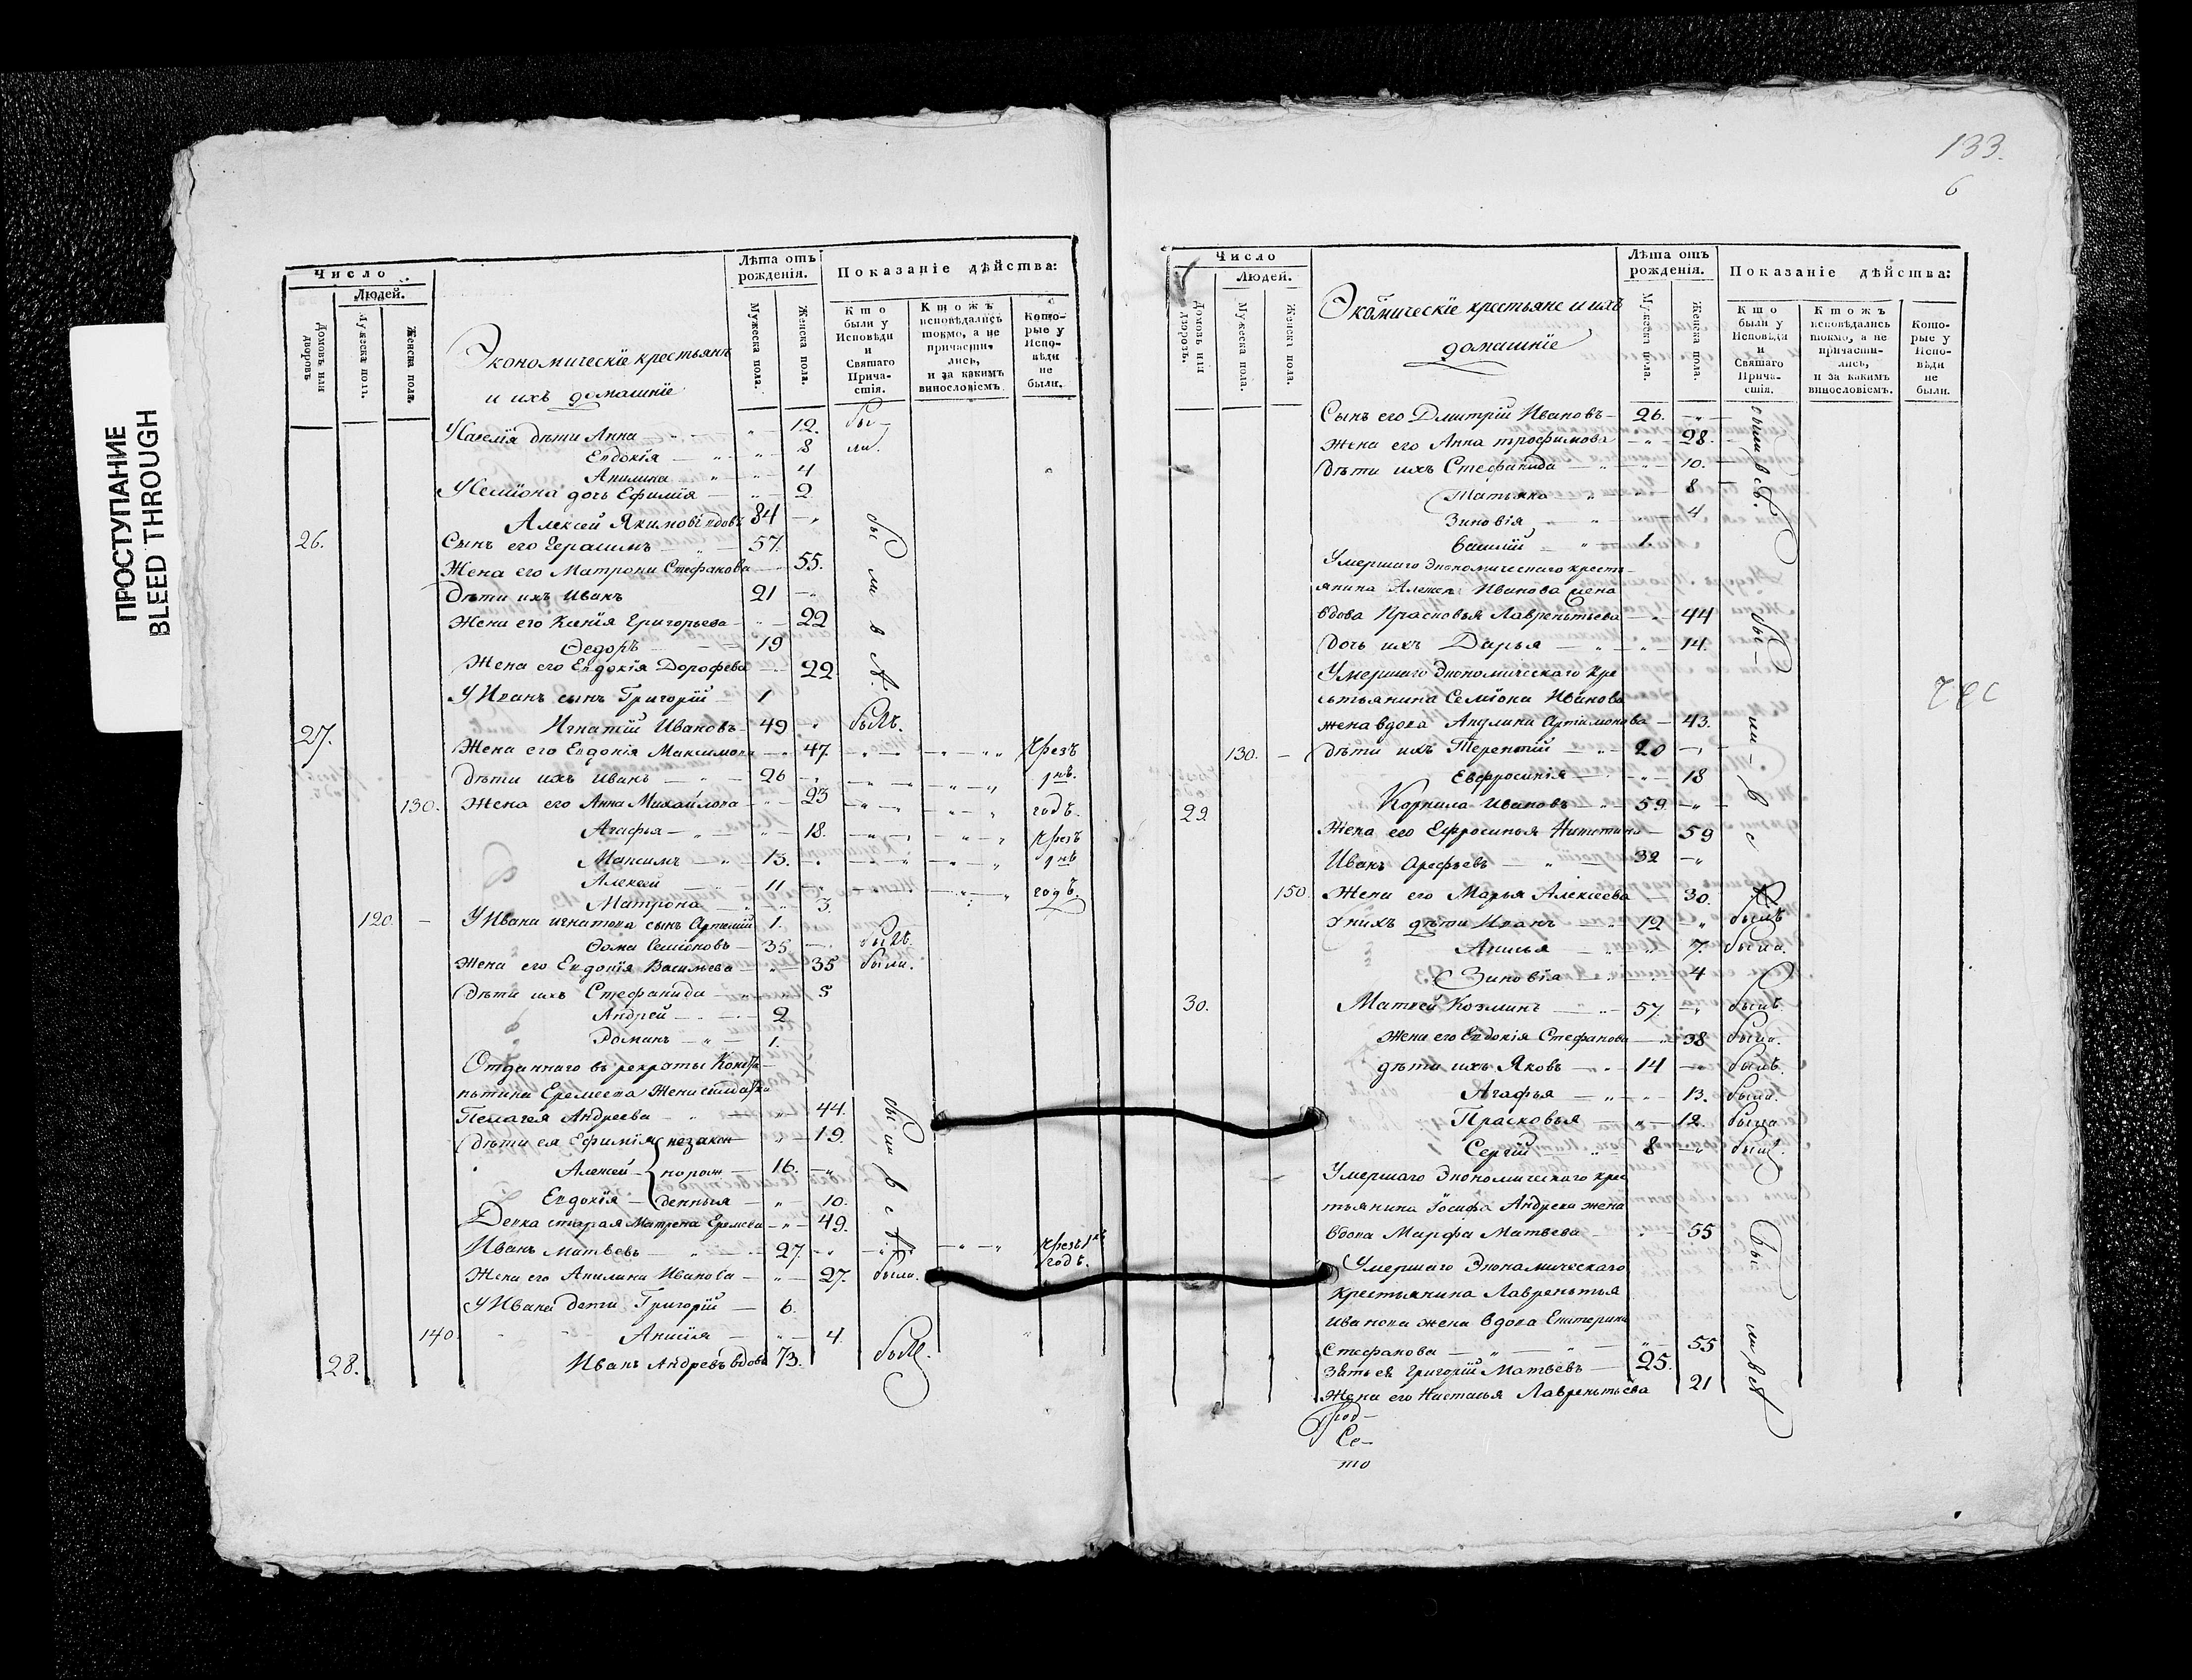 ПРОСТУПАНИЕ
BLEED THROUGH
Число
Людей.
Домовъ или дворовъ
Мужеска полъ.
Женска пола.
Экономическїе крестьянѣ
и ихъ домашнїе
Лѣта отъ рожденія.
Мужеска пола.
Женска пола.
Показаніе дѣйства:
Кто были у Исповѣди и Святаго Причастія.
Ктожъ исповѣдались токмо, а не причастились, и за какимъ винословіемъ.
Которые у Исповѣди не были.
дѣти Анна 12. бы-
Евдокїя 8 ли.
Акилина 4
дочь Ефимїя 2
26. Алексей Якимовъ вдовъ 84
Сынъ его Герасимъ 57.
Жена его Матрона Стефанова 55.
Дѣти ихъ Иванъ 21
Жена его Ксенїя Григорьева 22
Ѳедоръ 19
Жена его Евдокїя Дорофеева 22
У Ивана сынъ Григорїй 1
27. Игнатїй Ивановъ 49 былъ.
Жена его Евдокїя Максимова 47 чрезъ
Дѣти ихъ Иванъ 26
130. Жена его Анна Михайлова 23 годъ.
Агафья 18. чрезъ
Максимъ 13.
Алексей 11 годъ.
Матрона 3.
120 У Ивана Игнатова сынъ Артемїй 1.
Ѳома Семїоновъ 35 былъ.
Жена его Евдокїя Васильева 35 была.
Дѣти ихъ Стефанида 5
Андрей 2
Романъ 1.
Отданнаго въ рекруты
Еремеева Жена
Пелагея Андреева 44.
Дѣти ея Ефимїя незакон 19.
Алексей норож 16.
Евдокїя денныя 10.
Девка старая Матрена Еремеева 49.
Иванъ Матвеевъ 27 чрезъ годъ.
Жена его Акилина Иванова 27. была.
У Ивана дети Григорїй 6.
140 Анисїя 4.
28. Иванъ Андреевъ вдовъ 73. былъ.
133.
6
Число
Людей.
Домовъ или дворовъ.
Мужеска пола.
Женска пола.
крестьяне и ихъ
домашнїе
Лѣта отъ рожденія.
Мужеска пола.
Женска пола.
Показаніе дѣйства:
Кто были у Исповѣди и Святаго Причастія.
Ктожъ исповѣдались токмо, а не причастились, и за какимъ винословіемъ.
Которые у Исповѣди не были.
Сынъ его Дмитрїй Ивановъ 26.
Жена его Анна Трофимова 28.
Дѣти ихъ Стефанида 10.
Татьяна 8
Зиновїя 4
Василїй 1.
Умершаго Экономическаго кресть-
янина Алексея Иванова жена
вдова Прасковья Лаврентьева 44
Дочь ихъ Дарья 14.
Умершаго Экономическаго кре
стьянина Семїона Иванова
жена вдова Акулина Артамонова 43.
130. Дѣти ихъ Терентїй 20
Евфросинїя 18
29 Корнила Ивановъ 59
Жена его Ефросинья Никитина 59
Иванъ Арефьевъ 32
150 Жена его Марья Алексеева 30.
У нихъ дѣти Иванъ 12 былъ
Анисья 7. была.
Зиновїя 4
30. Матвей Козминъ 57 былъ.
Жена его Евдокїя Стефанова 38 была.
дѣти ихъ Яковъ 14 былъ.
Агафья 13. была.
Прасковья 12. была
Сергїй 8 былъ.
Умершаго Экономическаго крес
тьянина Іосифа Андреева жена
вдова Марфа Матвеева 55
Умершаго Экономическаго
крестьянина Лаврентья
Иванова жена вдова Екатерина
Стефанова 55
Зять ея Григорїй Матвеевъ 25.
Жена его Настасья Лаврентьева 21